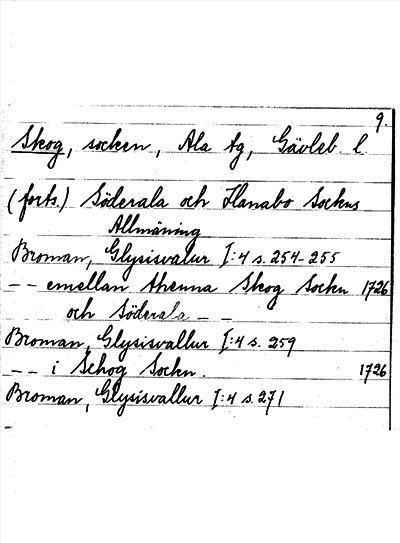 9.
Skog, socken, Ala tg, Gävleb. l.
(forts.) Söderala och Hanabo Sockns
Allmäning
Broman, Glysisvalur I:4 s. 254-255
-- emellan thenna Skog Sockn 1726
och Söderala --
Broman, Glysisvallur I:4 s. 259
-- i Schog Sockn. 1726
Broman, Glysisvallur I:4 s. 271